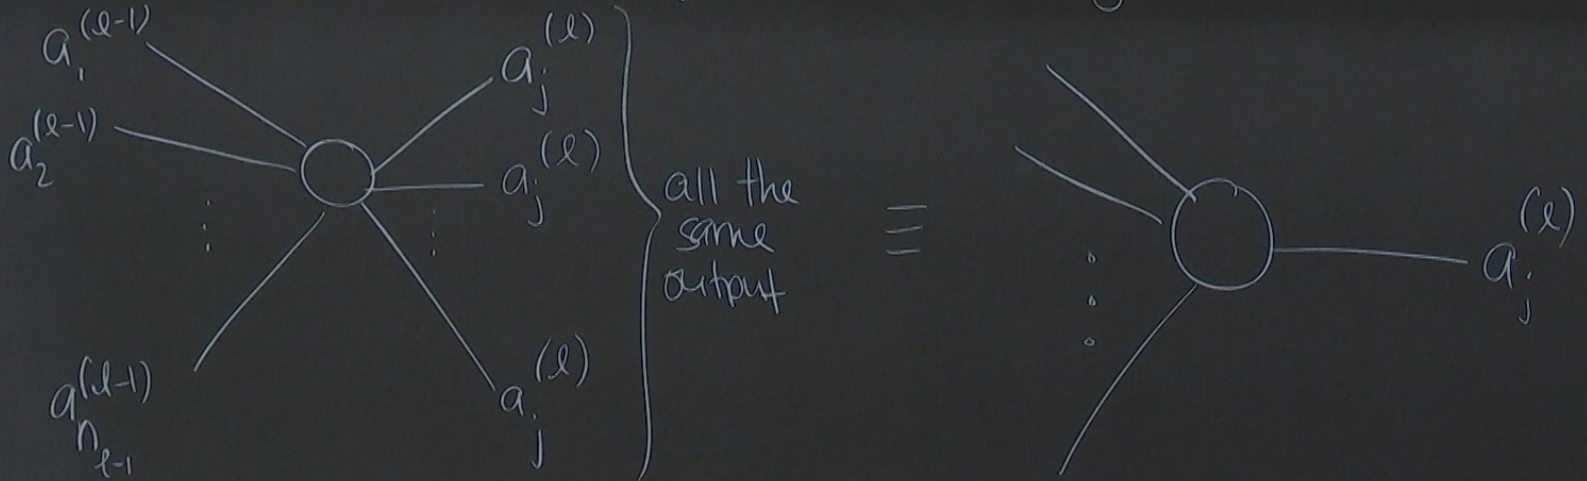 a₁^(ℓ-1)
a₂^(ℓ-1)
⋮
a_{n_{ℓ-1}}^(ℓ-1)
a_j^(ℓ)
a_j^(ℓ)
⋮
a_j^(ℓ)
all the
same
output
≡
⋮
a_j^(ℓ)